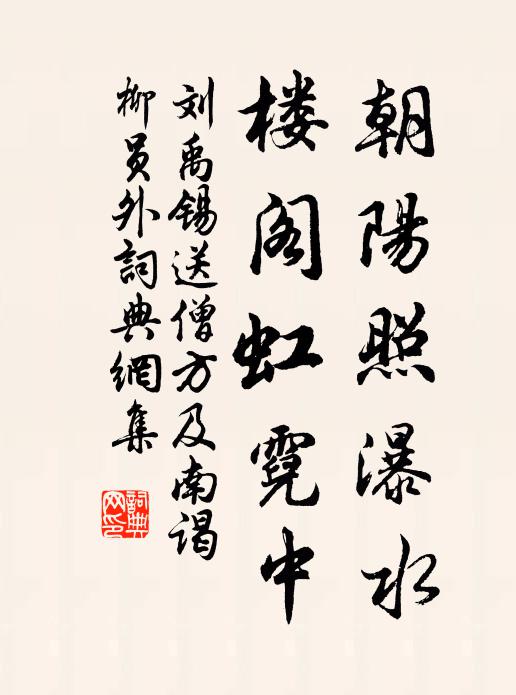 朝陽照瀑水
楼阁虹霓中
刘禹锡送僧方及南谒
柳员外詞典網集
詞典
网印